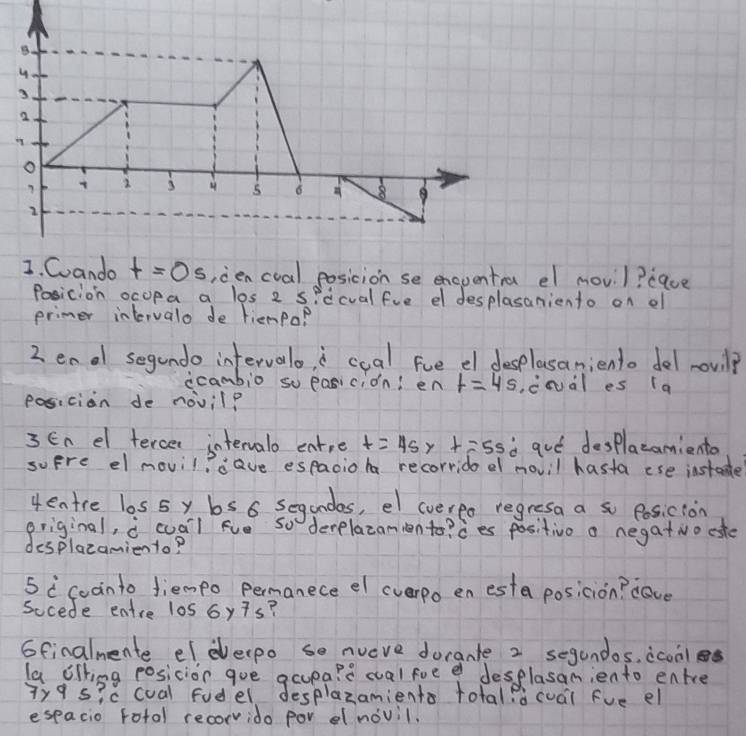 5
4
3
2
1
0
1
2
1 2 3 4 5 6 7 8 9
1. Cuando t = 0s, ¿en cual posición se encuentra el movil? ¿que
Posición ocupa a los 2 s? ¿cual fue el desplasaniento en el
primer intervalo de tienpo?
2 en el segundo intervalo, ¿ cual fue el desplasaniento del movil?
¿cambio su posición? en t = 4s, ¿cuál es la
posición de móvil?
3 En el tercer intervalo entre t = 4s y t = 5s ¿ qué desplazamiento
sufre el movil? ¿Que espacio ha recorrido el movil hasta ese instante?
4 entre los 5 y los 6 segundos, el cuerpo regresa a su posición
original, ¿ cuál fue su desplazamiento? ¿ es positivo o negativo este
desplazamiento?
5 ¿ cuánto tiempo permanece el cuerpo en esta posición? ¿Que
Sucede entre los 6 y 7s?
6 finalmente el cuerpo se nueve durante 2 segundos. ¿cuál es
la última posición que ocupa? ¿ cual fue el desplasamiento entre
7 y 9 s? ¿ cual fue el desplazamiento total? ¿ cuál fue el
espacio total recorrido por el móvil.